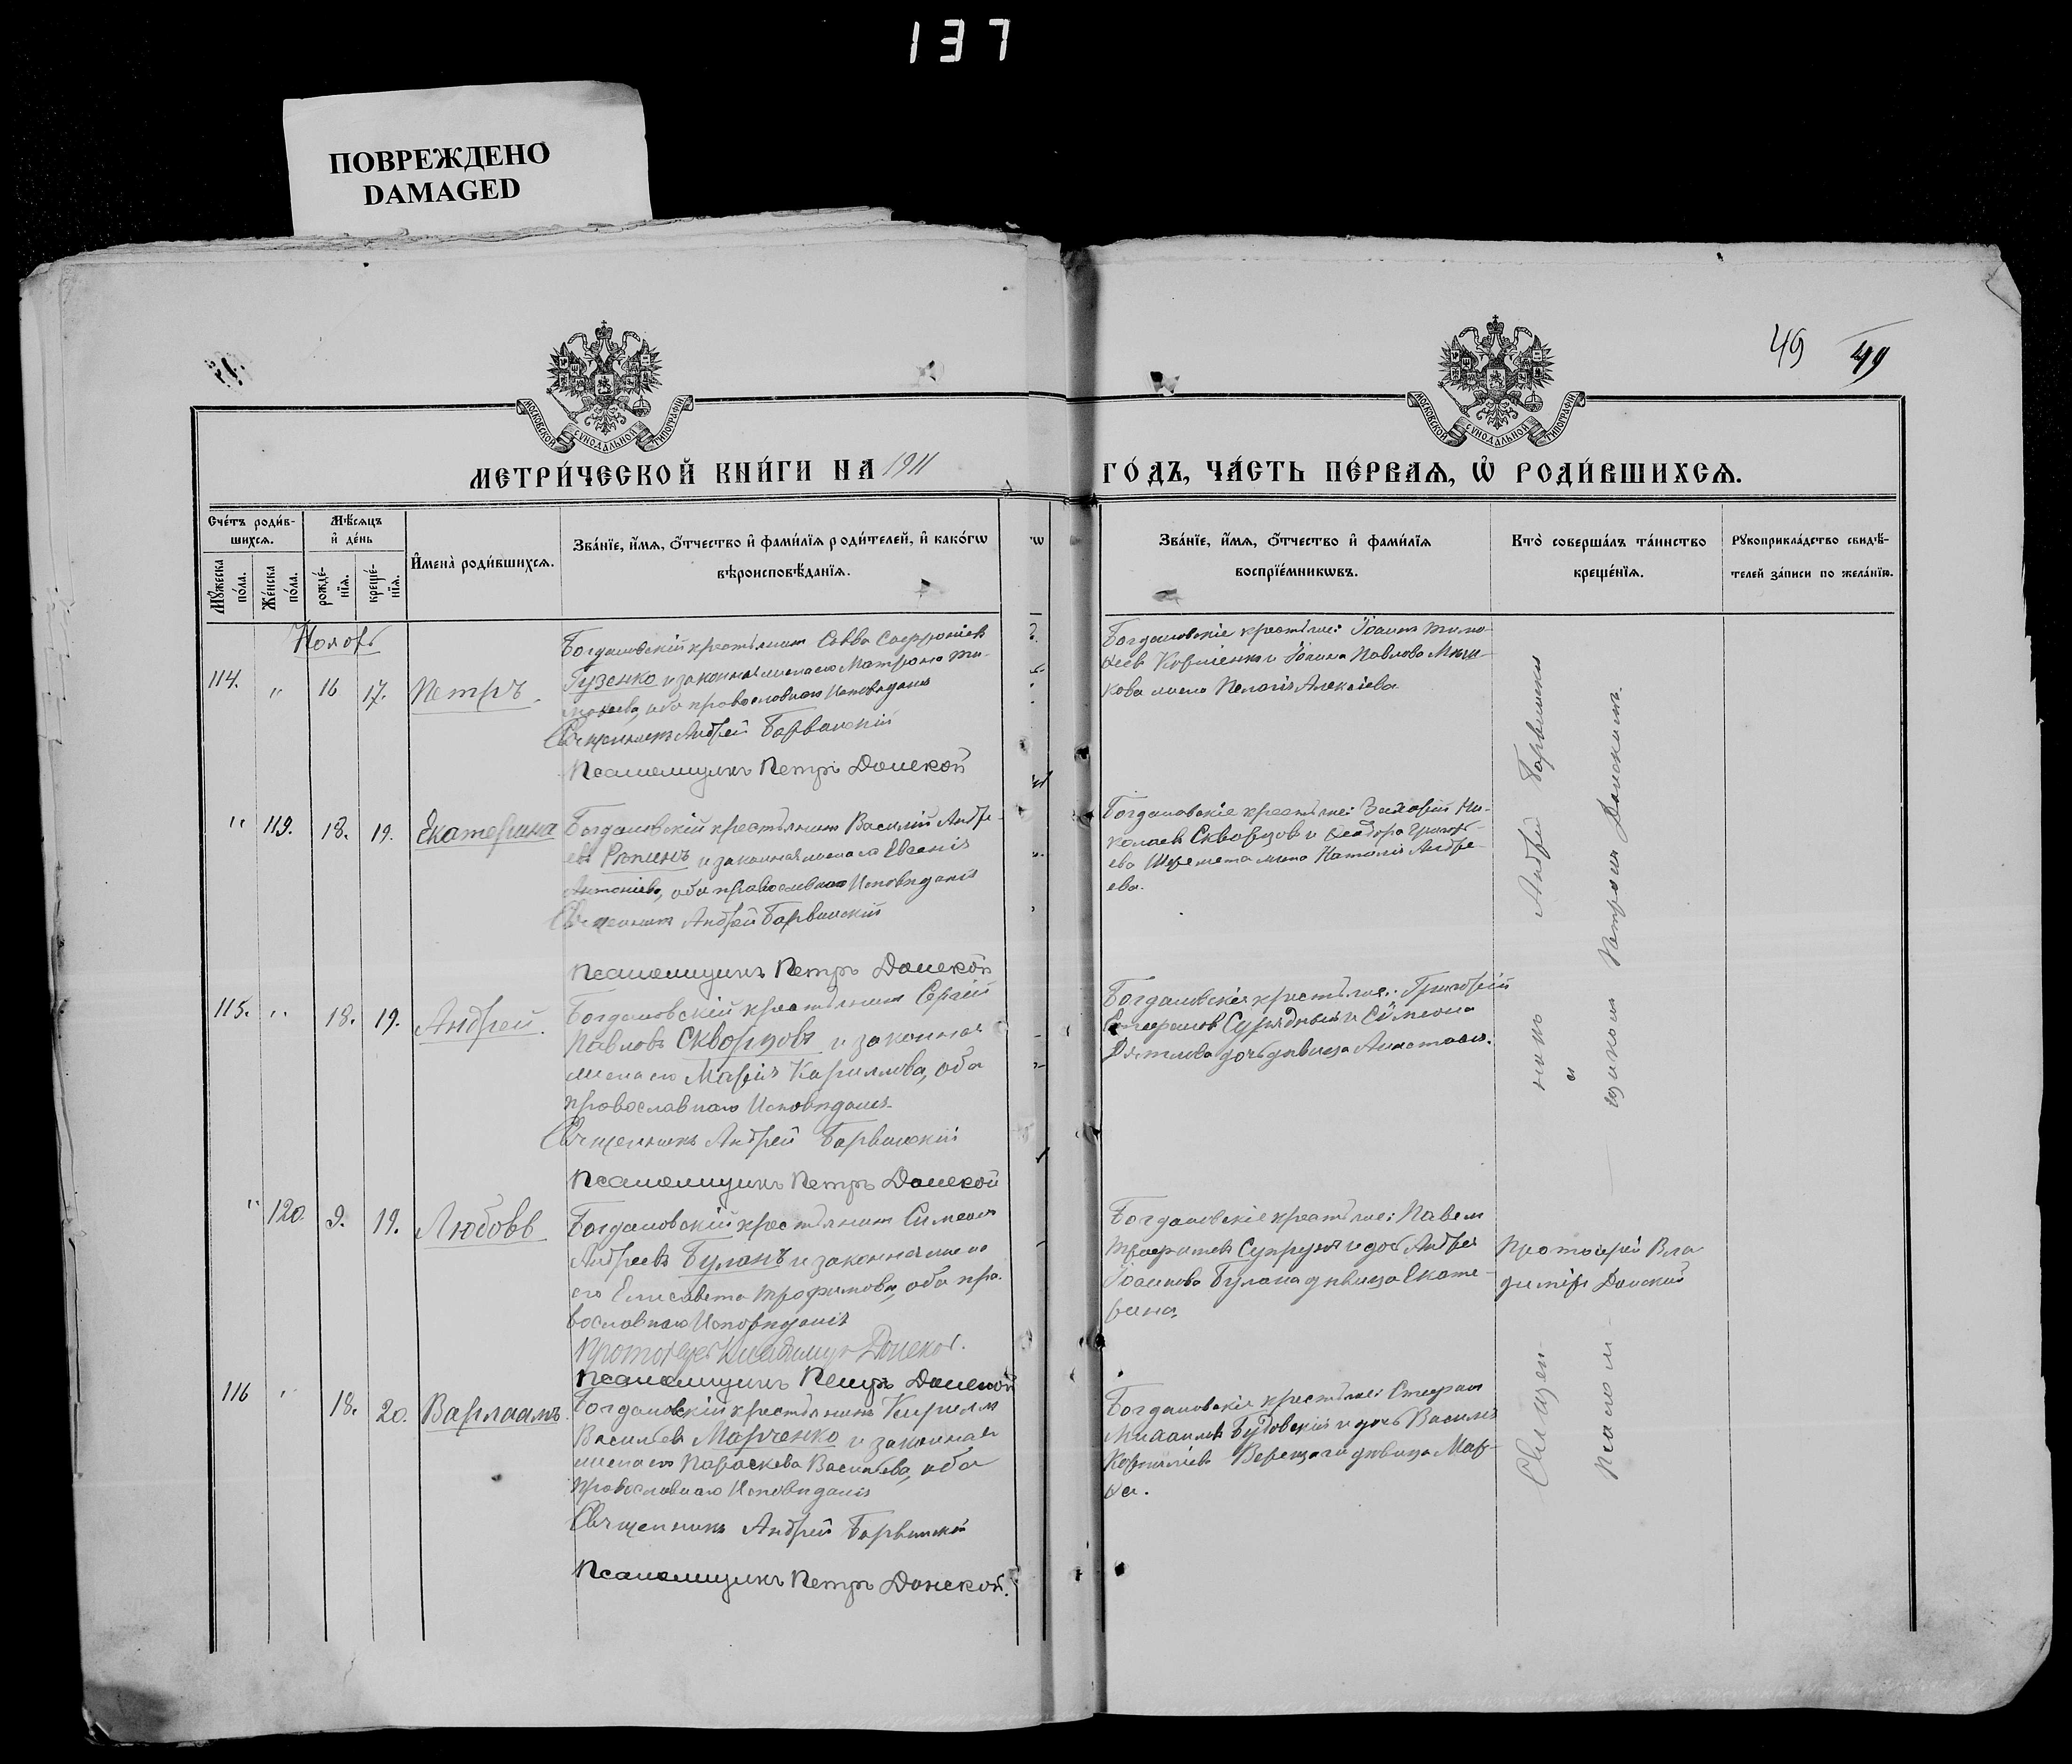 137
ПОВРЕЖДЕНО
DAMAGED
49 49
МОСКОВСКОЙ СѴНОДАЛЬНОЙ ТИПОГРАФІИ
МОСКОВСКОЙ СѴНОДАЛЬНОЙ ТИПОГРАФІИ
МЕТРИ́ЧЕСКОЙ КНИ́ГИ НА 1911
ГО́ДЪ, ЧА́СТЬ ПЕ́РВАѦ, Ѡ҆ РОДИ́ВШИХСѦ.
Сче́тъ роди́в-
шихсѧ.
Мꙋ́жеска
по́ла.
Же́нска
по́ла.
Мѣ́сѧцъ
и҆ де́нь
рожде́-
нїѧ.
креще́-
нїѧ.
И҆мена̀ роди́вшихсѧ.
Зва́нїе, и҆́мѧ, ѻ҆́тчество и҆ фами́лїѧ роди́телей, и҆ како́гѡ
вѣроисповѣ́данїѧ.
Зва́нїе, и҆́мѧ, ѻ҆́тчество и҆ фами́лїѧ
воспрїе́мникѡвъ.
Кто̀ соверша́лъ та́инство
креще́нїѧ.
Рꙋкоприкла́дство свидѣ́-
телей за́писи по жела́нїю.
Ноябрь
114. " 16 17. Петръ.
Богдановскій крестьянинъ Савва Софроніевъ
Гузенко и законная жена его Матрона Ти-
мофеева, оба православнаго Исповѣданія
Священникъ Андрей Барвинскій
Псаломщикъ Петръ Донской
Богдановскіе крестьяне: Іоаннъ Тимо-
феевъ Корніенко и Павлова
жена Пелагія Алексіева.
" 119. 18. 19. Екатерина
Богдановскій крестьянинъ Василій Андре-
евъ Рѣпинъ и законная жена его Евгенія
Антоніева, оба православнаго Исповѣданія
Священникъ Андрей Барвинскій
Псаломщикъ Петръ Донской
Богдановскіе крестьяне: Захарій Ни-
колаевъ Скворцовъ и Ѳеодора Григорь-
ева Шеремета жена Наталія Андре-
ева.
115. " 18. 19. Андрей.
Богдановскій крестьянинъ Сергій
Павловъ Скворцовъ и законная
жена его Марія Кириллова, оба
православнаго Исповѣданія
Священникъ Андрей Барвинскій
Псаломщикъ Петръ Донской
Богдановскіе крестьяне: Григорій
Стефановъ и Сѵмеона
Дятлова дочь дѣвица Анастасія.
" 120. 9. 19. Любовь
Богдановскій крестьянинъ Симеонъ
Андреевъ Буланъ и законная жена
его Елисавета Трофимова, оба пра-
вославнаго Исповѣданія
Протоіерей Владимиръ Донской.
Псаломщикъ Петръ Донской
Богдановскіе крестьяне: Павелъ
Супрунъ и дочь Андрея
Іоаннова Булана дѣвица Екате-
рина.
Протоіерей Вла-
димиръ Донской
116 " 18. 20. Варлаамъ.
Богдановскій крестьянинъ Кириллъ
Васильевъ Марченко и законная
жена его Параскева Васильева, оба
православнаго Исповѣданія
Священникъ Андрей Барвинскій
Псаломщикъ Петръ Донской.
Богдановскіе крестьяне: Стефанъ
Михаиловъ Будовскій и дочь Василія
Корниліева Верещаги дѣвица Мар-
ѳа.
Священ-
никъ Андрей Барвинскій
и
Псалом-
щикомъ Петромъ Донскимъ.